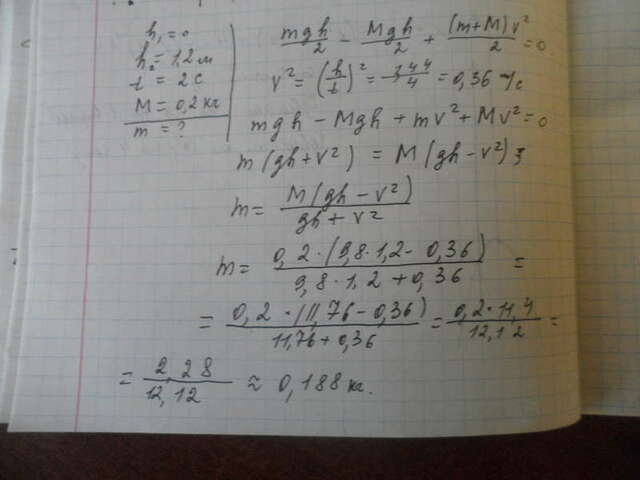 h₁ = 0
h₂ = 1,2 м
t = 2 с
M = 0,2 кг
m = ?
mgh/2 - Mgh/2 + (m+M)v²/2 = 0
v² = (h/t)² = 1,44/4 = 0,36 м/с
mgh - Mgh + mv² + Mv² = 0
m(gh+v²) = M(gh-v²)3
m = M(gh-v²)/gh+v²
m = 0,2·(9,8·1,2-0,36)/9,8·1,2+0,36 =
= 0,2·(11,76-0,36)/11,76+0,36 = 0,2·11,4/12,12 =
= 2,28/12,12 ≈ 0,188 кг.